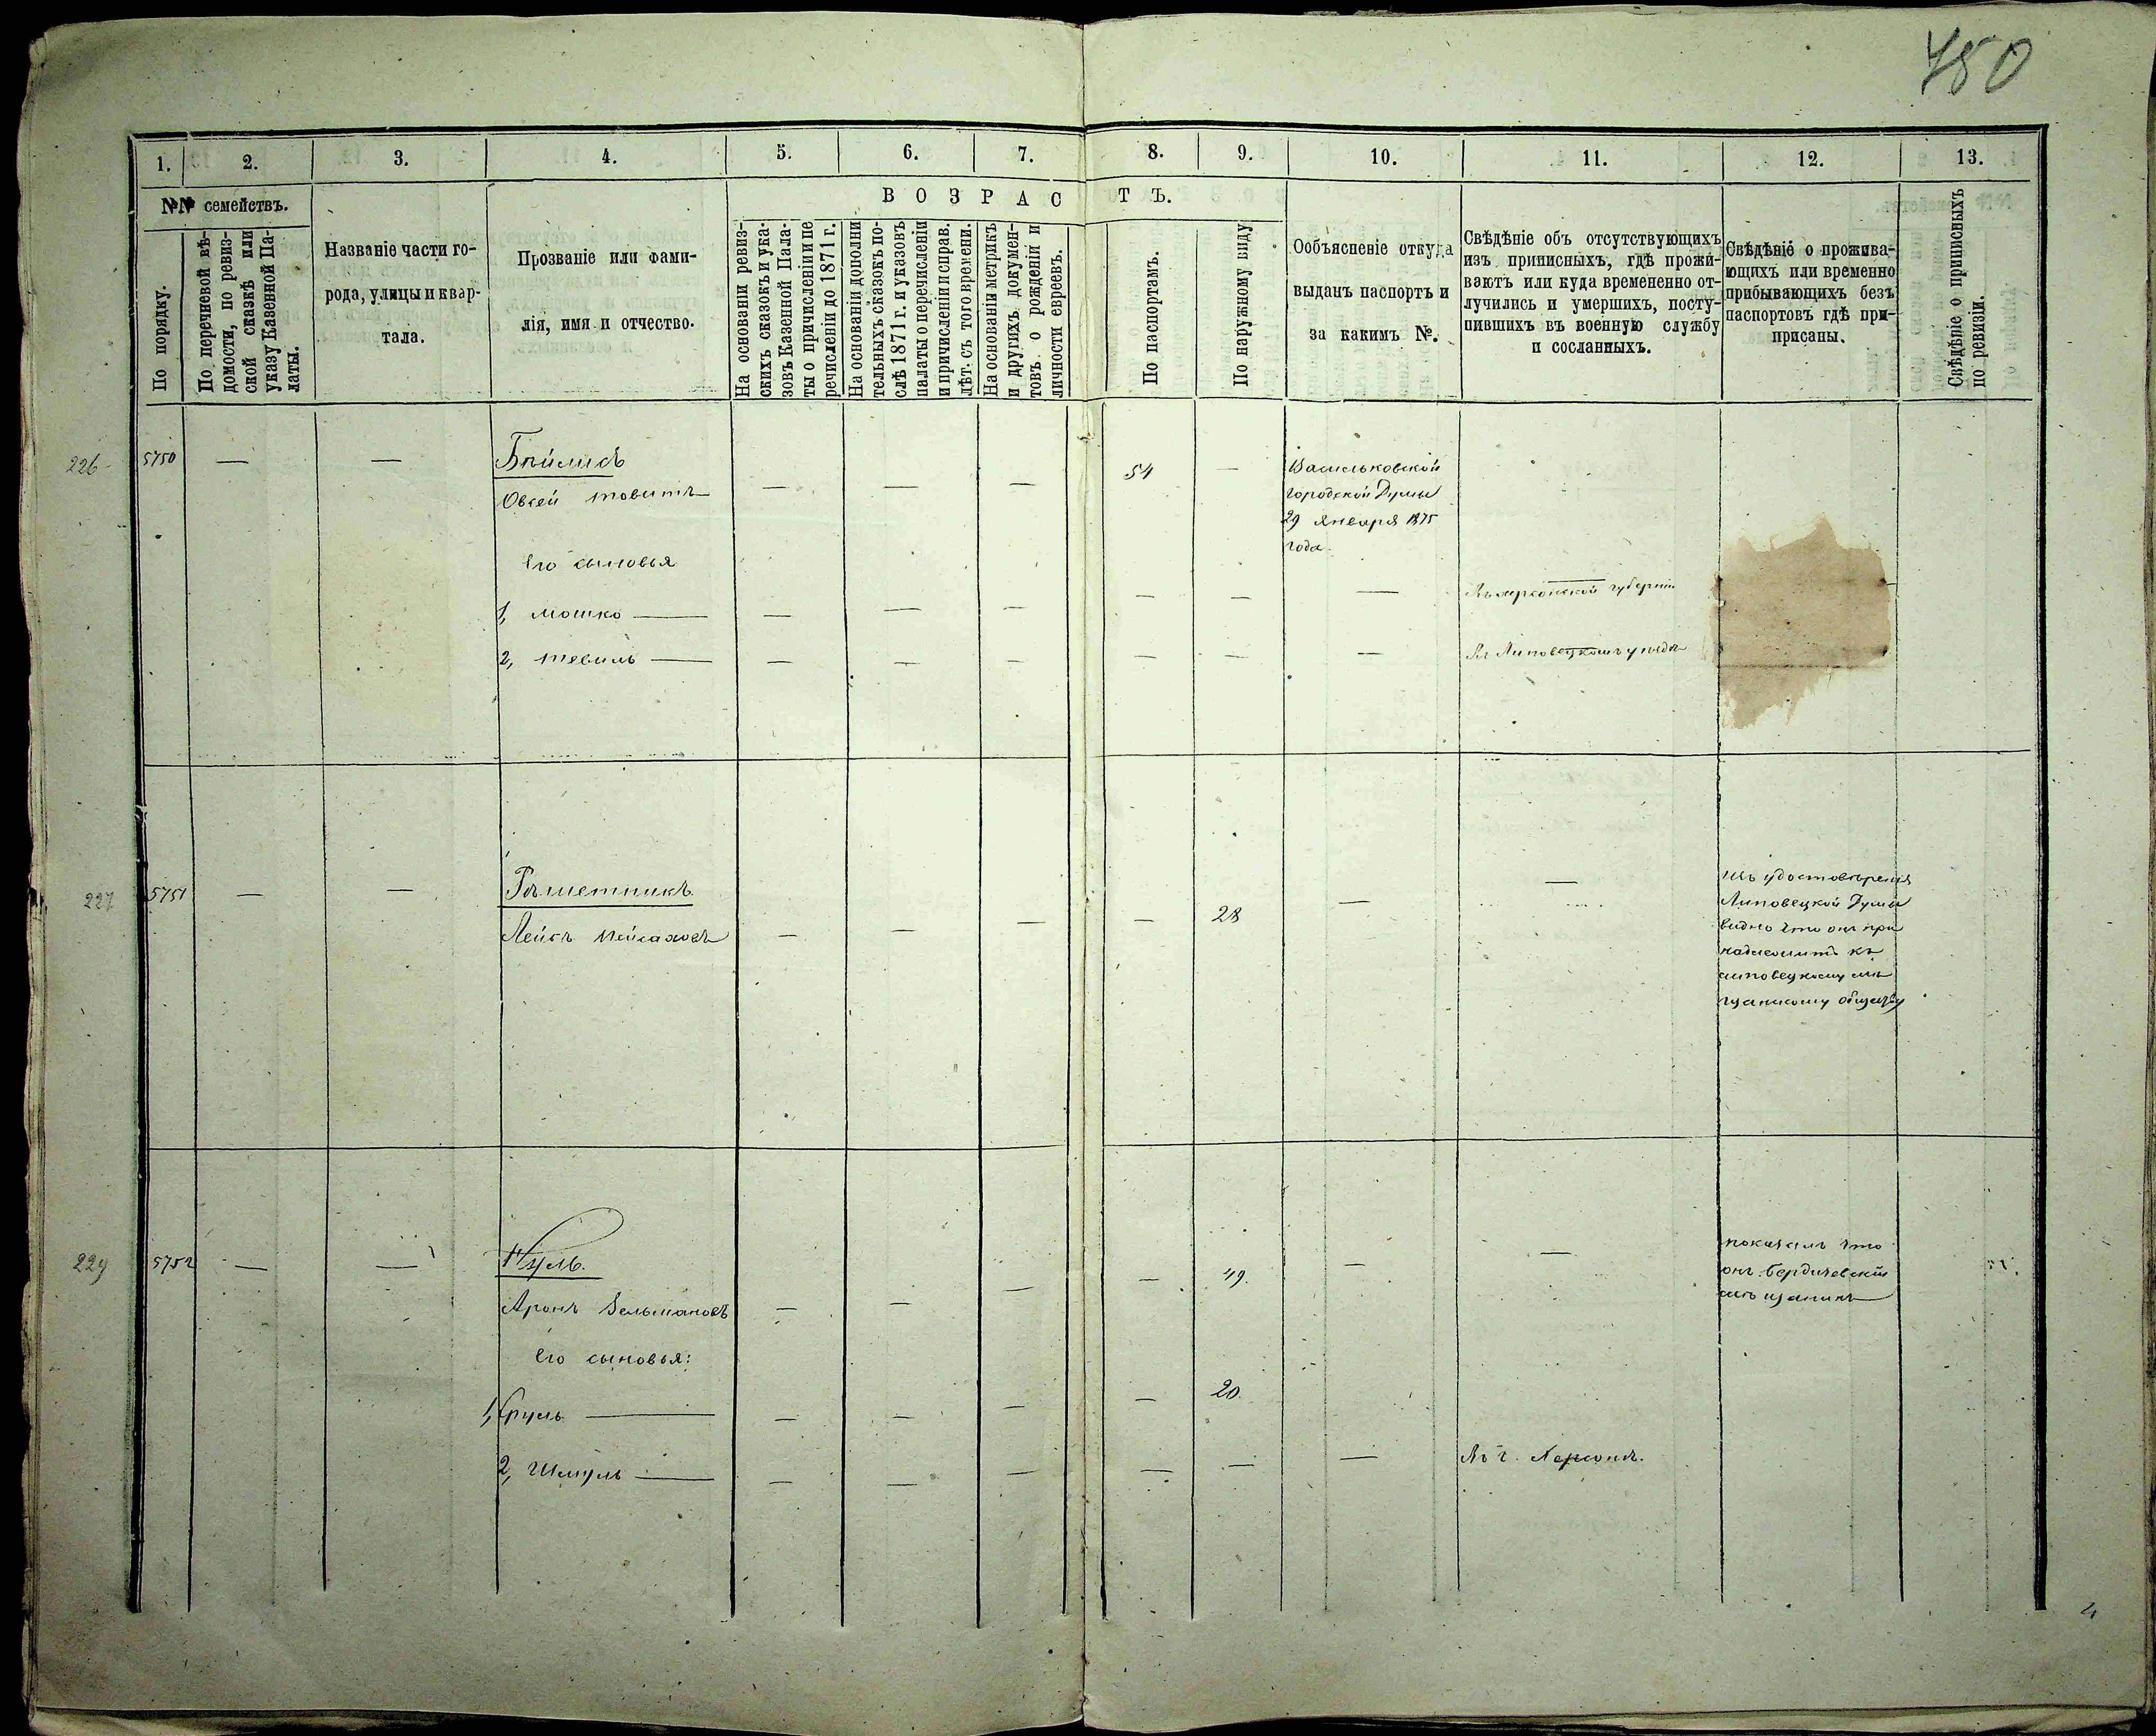 450
1. 2. 3. 4. 5. 6. 7. 8. 9. 10. 11. 12. 13.
№№ семействъ.
По порядку.
По перечневой вѣ-
домости, по ревиз-
ской сказкѣ или
указу Казенной Па-
латы.
Названіе части го-
рода, улицы и квар-
тала.
Прозваніе или фами-
лія, имя и отчество.
ВОЗРАСТЪ.
На основаніи ревиз-
скихъ сказокъ и ука-
зовъ Казенной Пала-
ты о причисленіи и пе
речисленіи до 1871 г.
На основаніи дополни
тельныхъ сказокъ по-
слѣ 1871 г. и указовъ
палаты о перечисленіи
и причисленіи и справ.
лѣт. съ того времени.
На основаніи метрикъ
и другихъ докумен-
товъ о рожденіи и
личности евреевъ.
По паспортамъ.
По наружному виду
Ообъясненіе откуда
выданъ паспортъ и
за какимъ №.
Свѣдѣніе объ отсутствующихъ
изъ приписныхъ, гдѣ прожи-
ваютъ или куда временно от-
лучились и умершихъ, посту-
пившихъ въ военную службу
и сосланныхъ.
Свѣдѣніе о прожива-
ющихъ или временно
прибывающихъ безъ
паспортовъ гдѣ при-
писаны.
Свѣдѣніе о приписныхъ
по ревизіи.
226 5750 — —
Бѣйлисъ
Овсей Товитъ — — — 54 —
Васильковской
городской Думы
29 января 1875
года.
Его сыновья
1, Мошко — — — — — — — Въ херсонской губерніи
2, Тевиль — — — — — — — Въ Липовецкомъ уѣздѣ
227 5751 — —
Рѣшетникъ
Лейбъ Пейсаховъ — — — — 28 — —
Изъ удостовѣренія
Липовецкой Думы
видно что онъ при
надлежитъ къ
липовецкому мѣ
щанскому обществу
229 5752 — —
Куль.
Аронъ Зельмановъ — — — — 49. — —
показалъ что
онъ бердичевскій
мѣщанинъ
Его сыновья:
1, Сруль — — — — — 20.
2, Шмуль — — — — — — — Въ г. Херсонѣ.
4